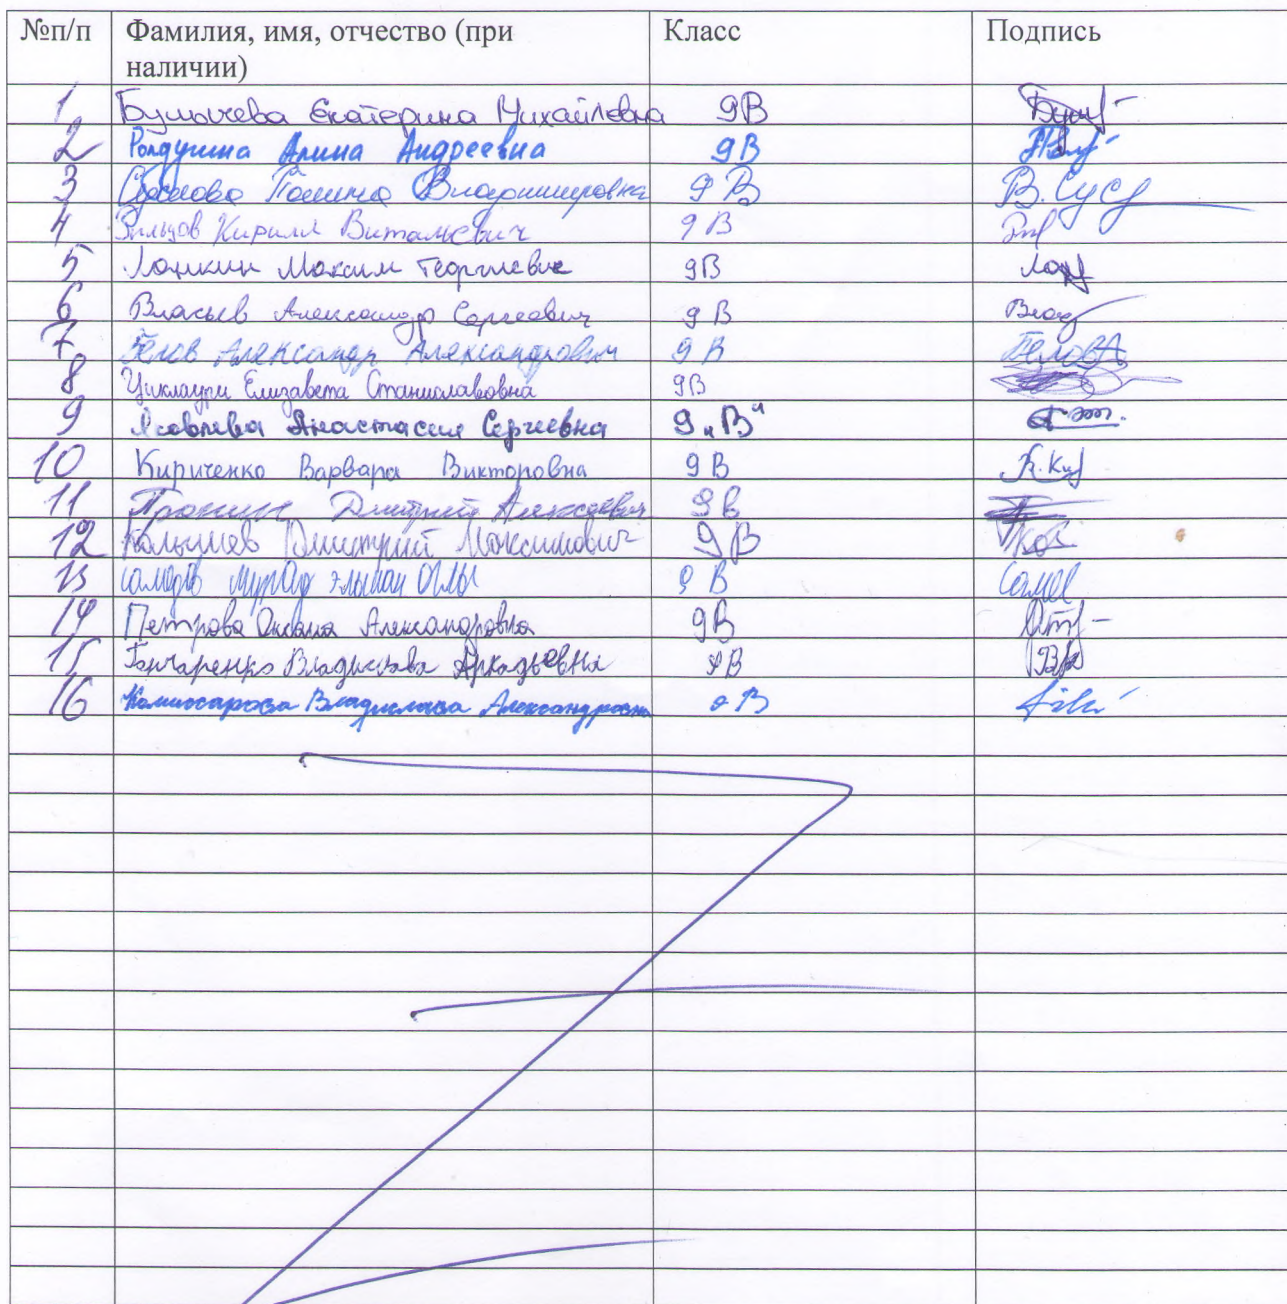 №п/п Фамилия, имя, отчество (при наличии) Класс Подпись
1 Булычева Екатерина Михайловна 9В
2 Ролдугина Алина Андреевна 9В
3 Полина Владимировна 9В В.Сус
4 Кирилл Витальевич 9В
5 Лапкин Максим Георгиевич 9В
6 Власьев Александр Сергеевич 9В
7 Белов Александр Александрович 9В БеловА
8 Циклаури Елизавета Станиславовна 9В
9 Яковлева Анастасия Сергеевна 9 „В"
10 Кириченко Варвара Викторовна 9В
11 Пронин Дмитрий Алексеевич 9в
12 Дмитрий Максимович 9В
13 Самедов Мурад Эльман Оглы 9В
14 Петрова Оксана Александровна 9В
15 Гончаренко Владислава Аркадьевна 9В
16 Комиссарова Владислава Александровна 9В